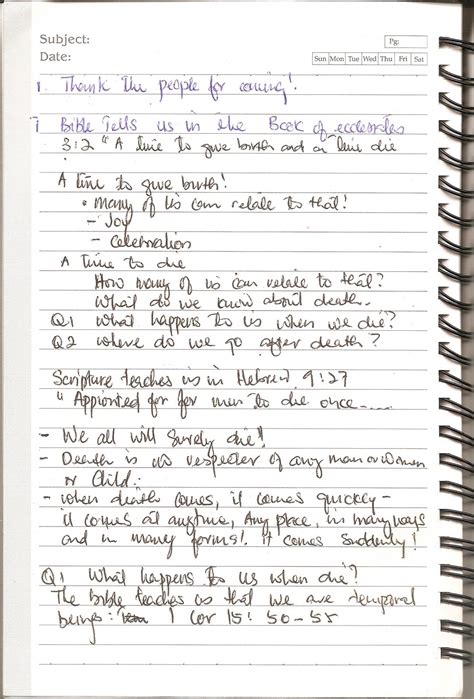 Subject:
Pg:
Date:
Sun Mon Tue Wed Thu Fri Sat
1. Thank the people for coming!
Bible Tells us in the Book of ecclesrates
3:2 "A time to give birth and a time die
A time to give birth!
• Many of us can relate to that!
- Joy
- Celebration
A time to die
How many of us can relate to that?
What do we know about death..
Q1 What happens to us when we die?
Q2 where do we go after death?
Scripture teaches us in Hebrew 9:27
" Appionted for for men to die once.....
- We all will Surely die!
- Death is no respecter of any man or women
or Child.
- when death comes, it comes quickly -
it comes at anytime, Any place, in many ways
and in many forms!. It comes Suddenly!
Q1 What happens to us when die?
The bible teaches us that we are temporal
beings: 1 Cor 15:50-55